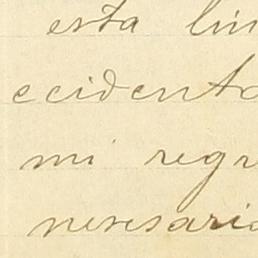 esta lin
ecidento
mi regr
nesesario